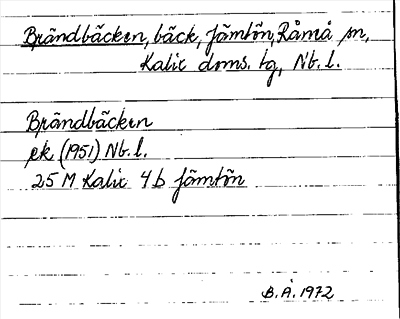 Brändbäcken, bäck, Jämtön, Råneå sn,
Kalix doms. tg, Nb. l.
Brändbäcken
ek (1951) Nb. l.
25 M Kalix 4b Jämtön
B. Å. 1972